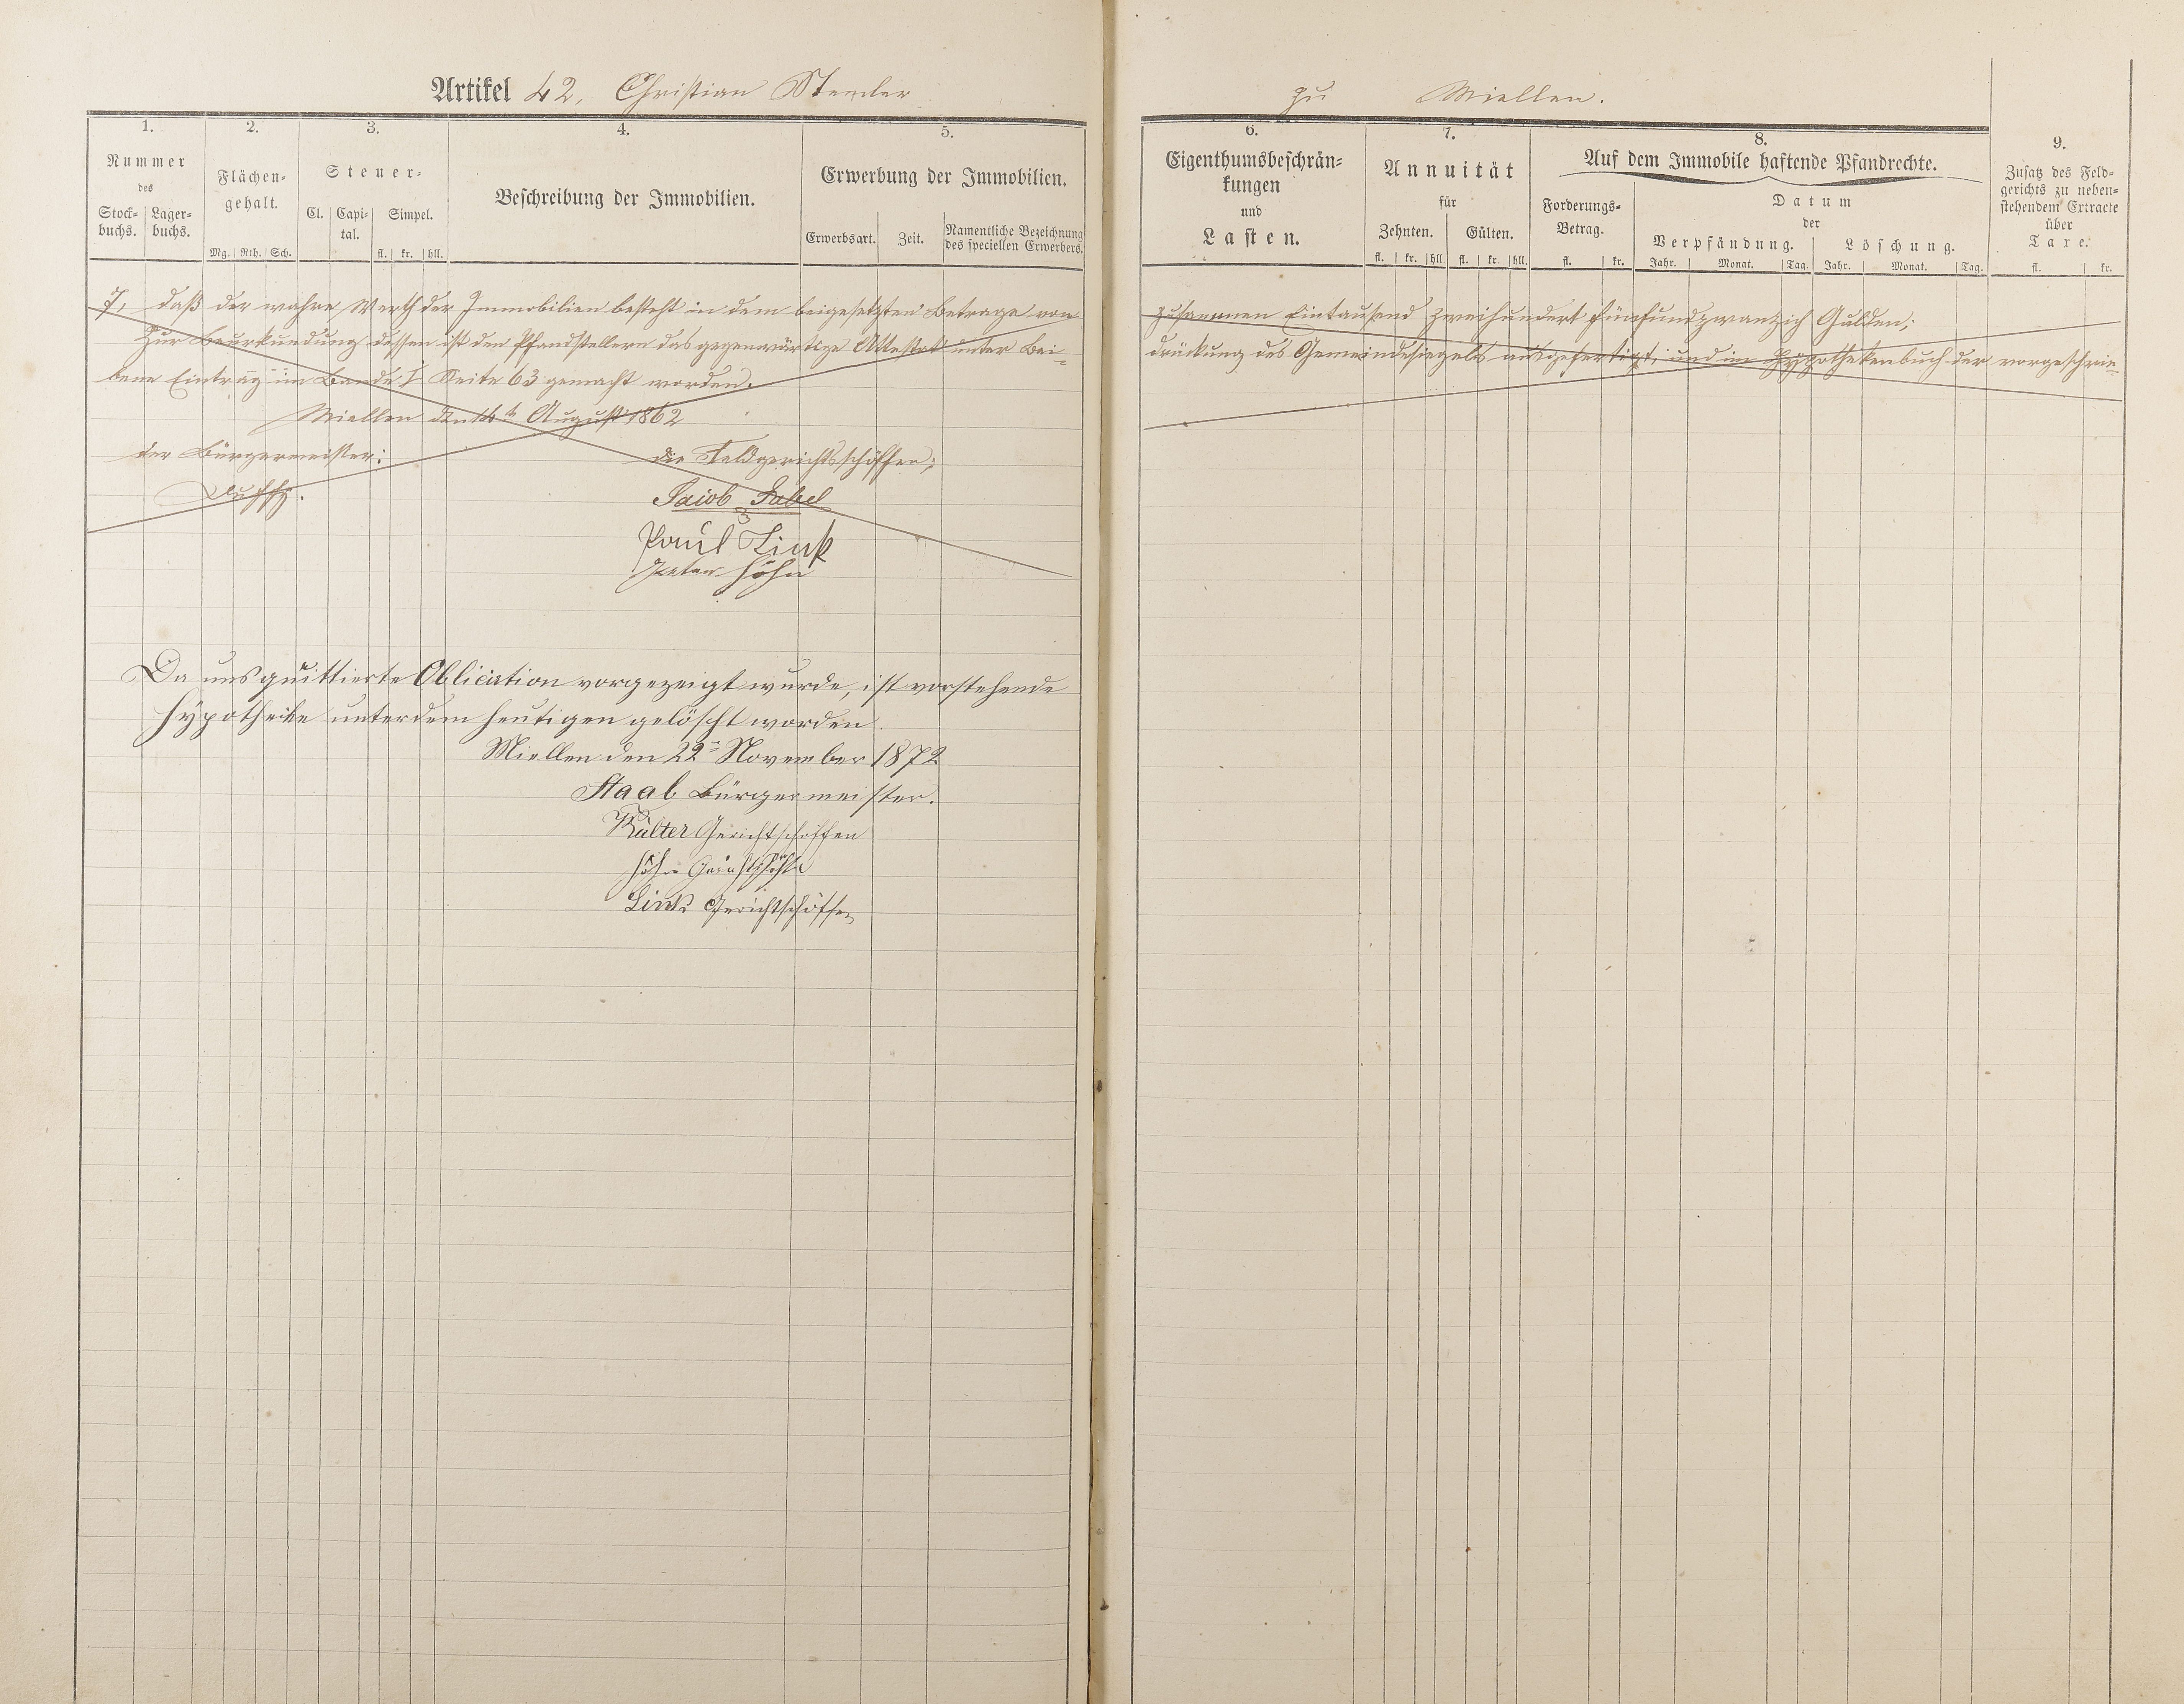 Artikel 42, Christian Stemler
zu Miellen.
1.
Nummer
des
Stock-
buchs.
Lager-
buchs.
2.
Flächen-
gehalt.
Mg. Rth. Sch.
3.
Steuer-
Cl. Capi-
tal. Simpel.
fl. kr. hll.
4.
Beschreibung der Immobilien.
5.
Erwerbung der Immobilien.
Erwerbsart. Zeit. Namentliche Bezeichnung
des speciellen Erwerbers.
6.
Eigenthumsbeschrän-
kungen
und
Lasten.
7.
Annuität
für
Zehnten. Gülten.
fl. kr. hll. fl. kr. hll.
8.
Auf dem Immobile haftende Pfandrechte.
Forderungs-
Betrag.
fl. kr.
Datum
der
Verpfändung. Löschung.
Jahr. Monat. Tag. Jahr. Monat. Tag.
9.
Zusatz des Feld-
gerichts zu neben-
stehendem Extracte
über
Taxe.
fl. kr.
7, daß der wahre Werth der Immobilien besteht in dem beigesetzten Betrage von zusammen Eintausend zweihundert fünfundzwanzich Gulden;
Zur Beurkundung dessen ist den Pfandstellern das gegenwärtige Attestat unter Bei- drückung des Gemeindesiegels ausgefertigt, und im Hypothekenbuch der vorgeschrie-
bene Eintrag im Bande I Seite 63 gemacht worden.
Miellen den 14th August 1862
der Bürgermeister: die Feldgerichtsschöffen;
Jacob Gabel
Paul Link
Peter Höhn
Da uns quittierte Obliration vorgezeigt wurde, ist vorstehende
Hypotheke unterdem heutigen gelöscht worden
Miellen den 22n November 1872
Staab Bürgermeister.
Kalter Gerichtschöffen
Höhn Gerichtschöffen
Link Gerichtschöffen